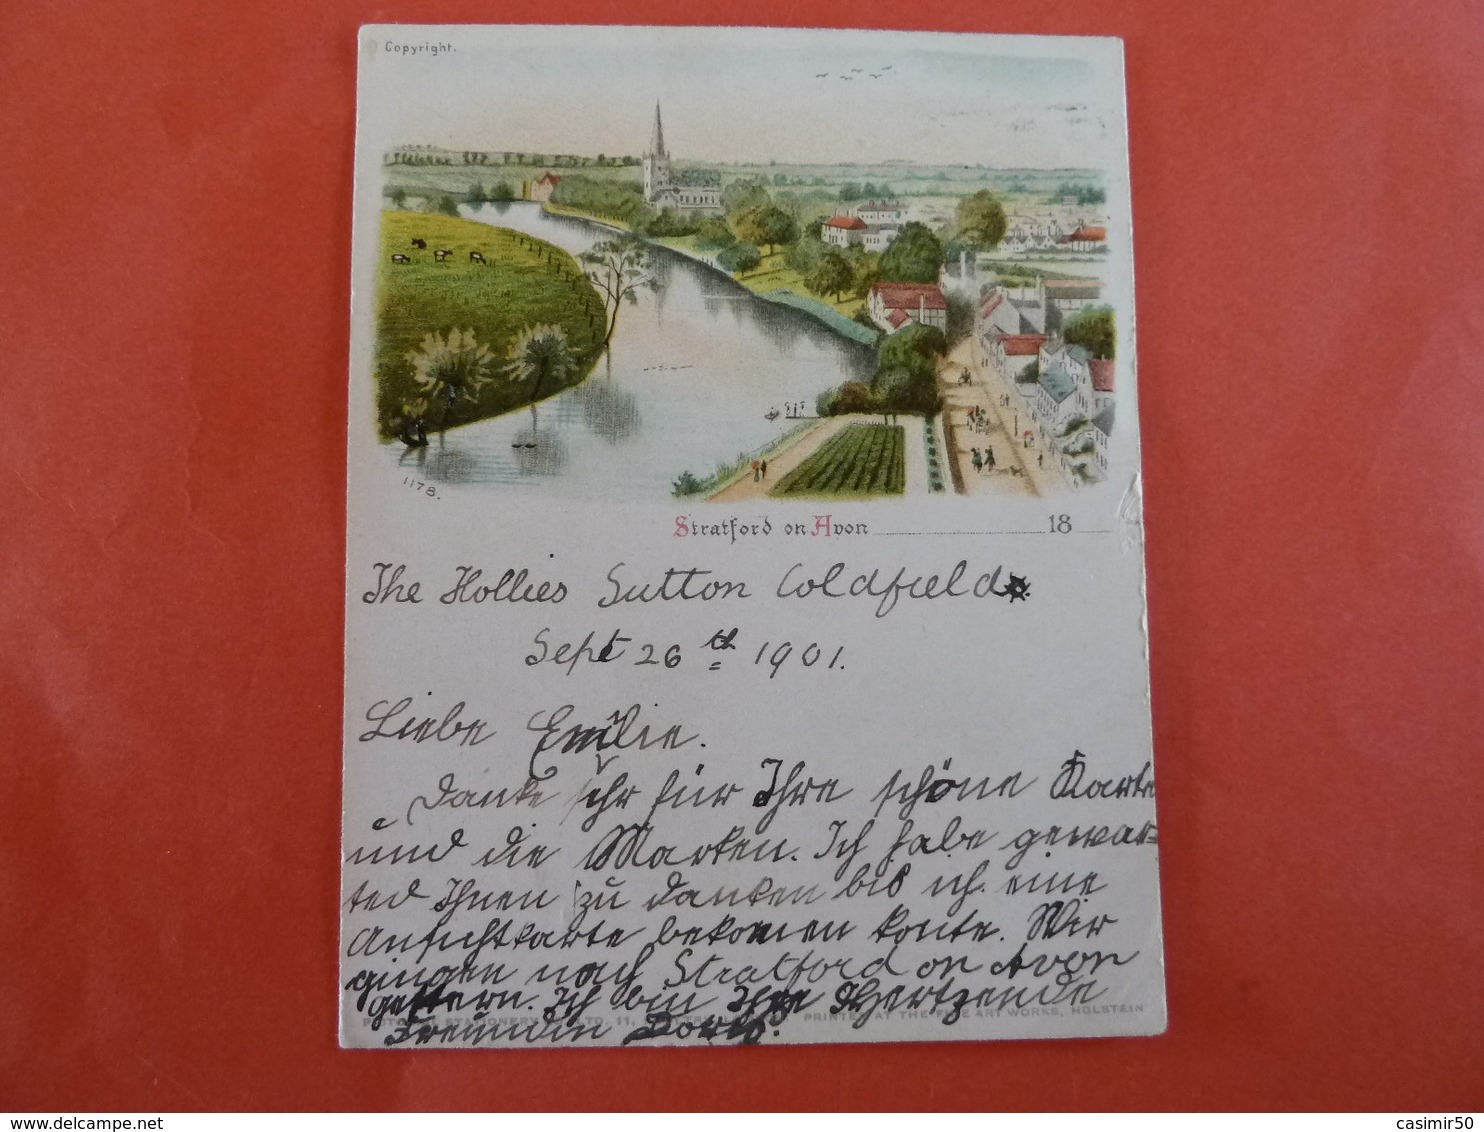 Copyright.
1178.
Stratford on Avon 18
The Hollies Sutton Coldfield.
Sept 26th 1901.
Liebe Emilie.
Danke Ihr für Ihre schöne Karte
und die Marken. Ich habe gewar=
ted Ihnen zu danken bis ich eine
Ansichtkarte bekomen konte. Wir
gingen nach Stratford on Avon
gestern. Ich bin Ihre Hertzende
Freundin
STATIONERY LTD, 11, PRINTED AT THE FINE ART WORKS, HOLSTEIN
casimir50